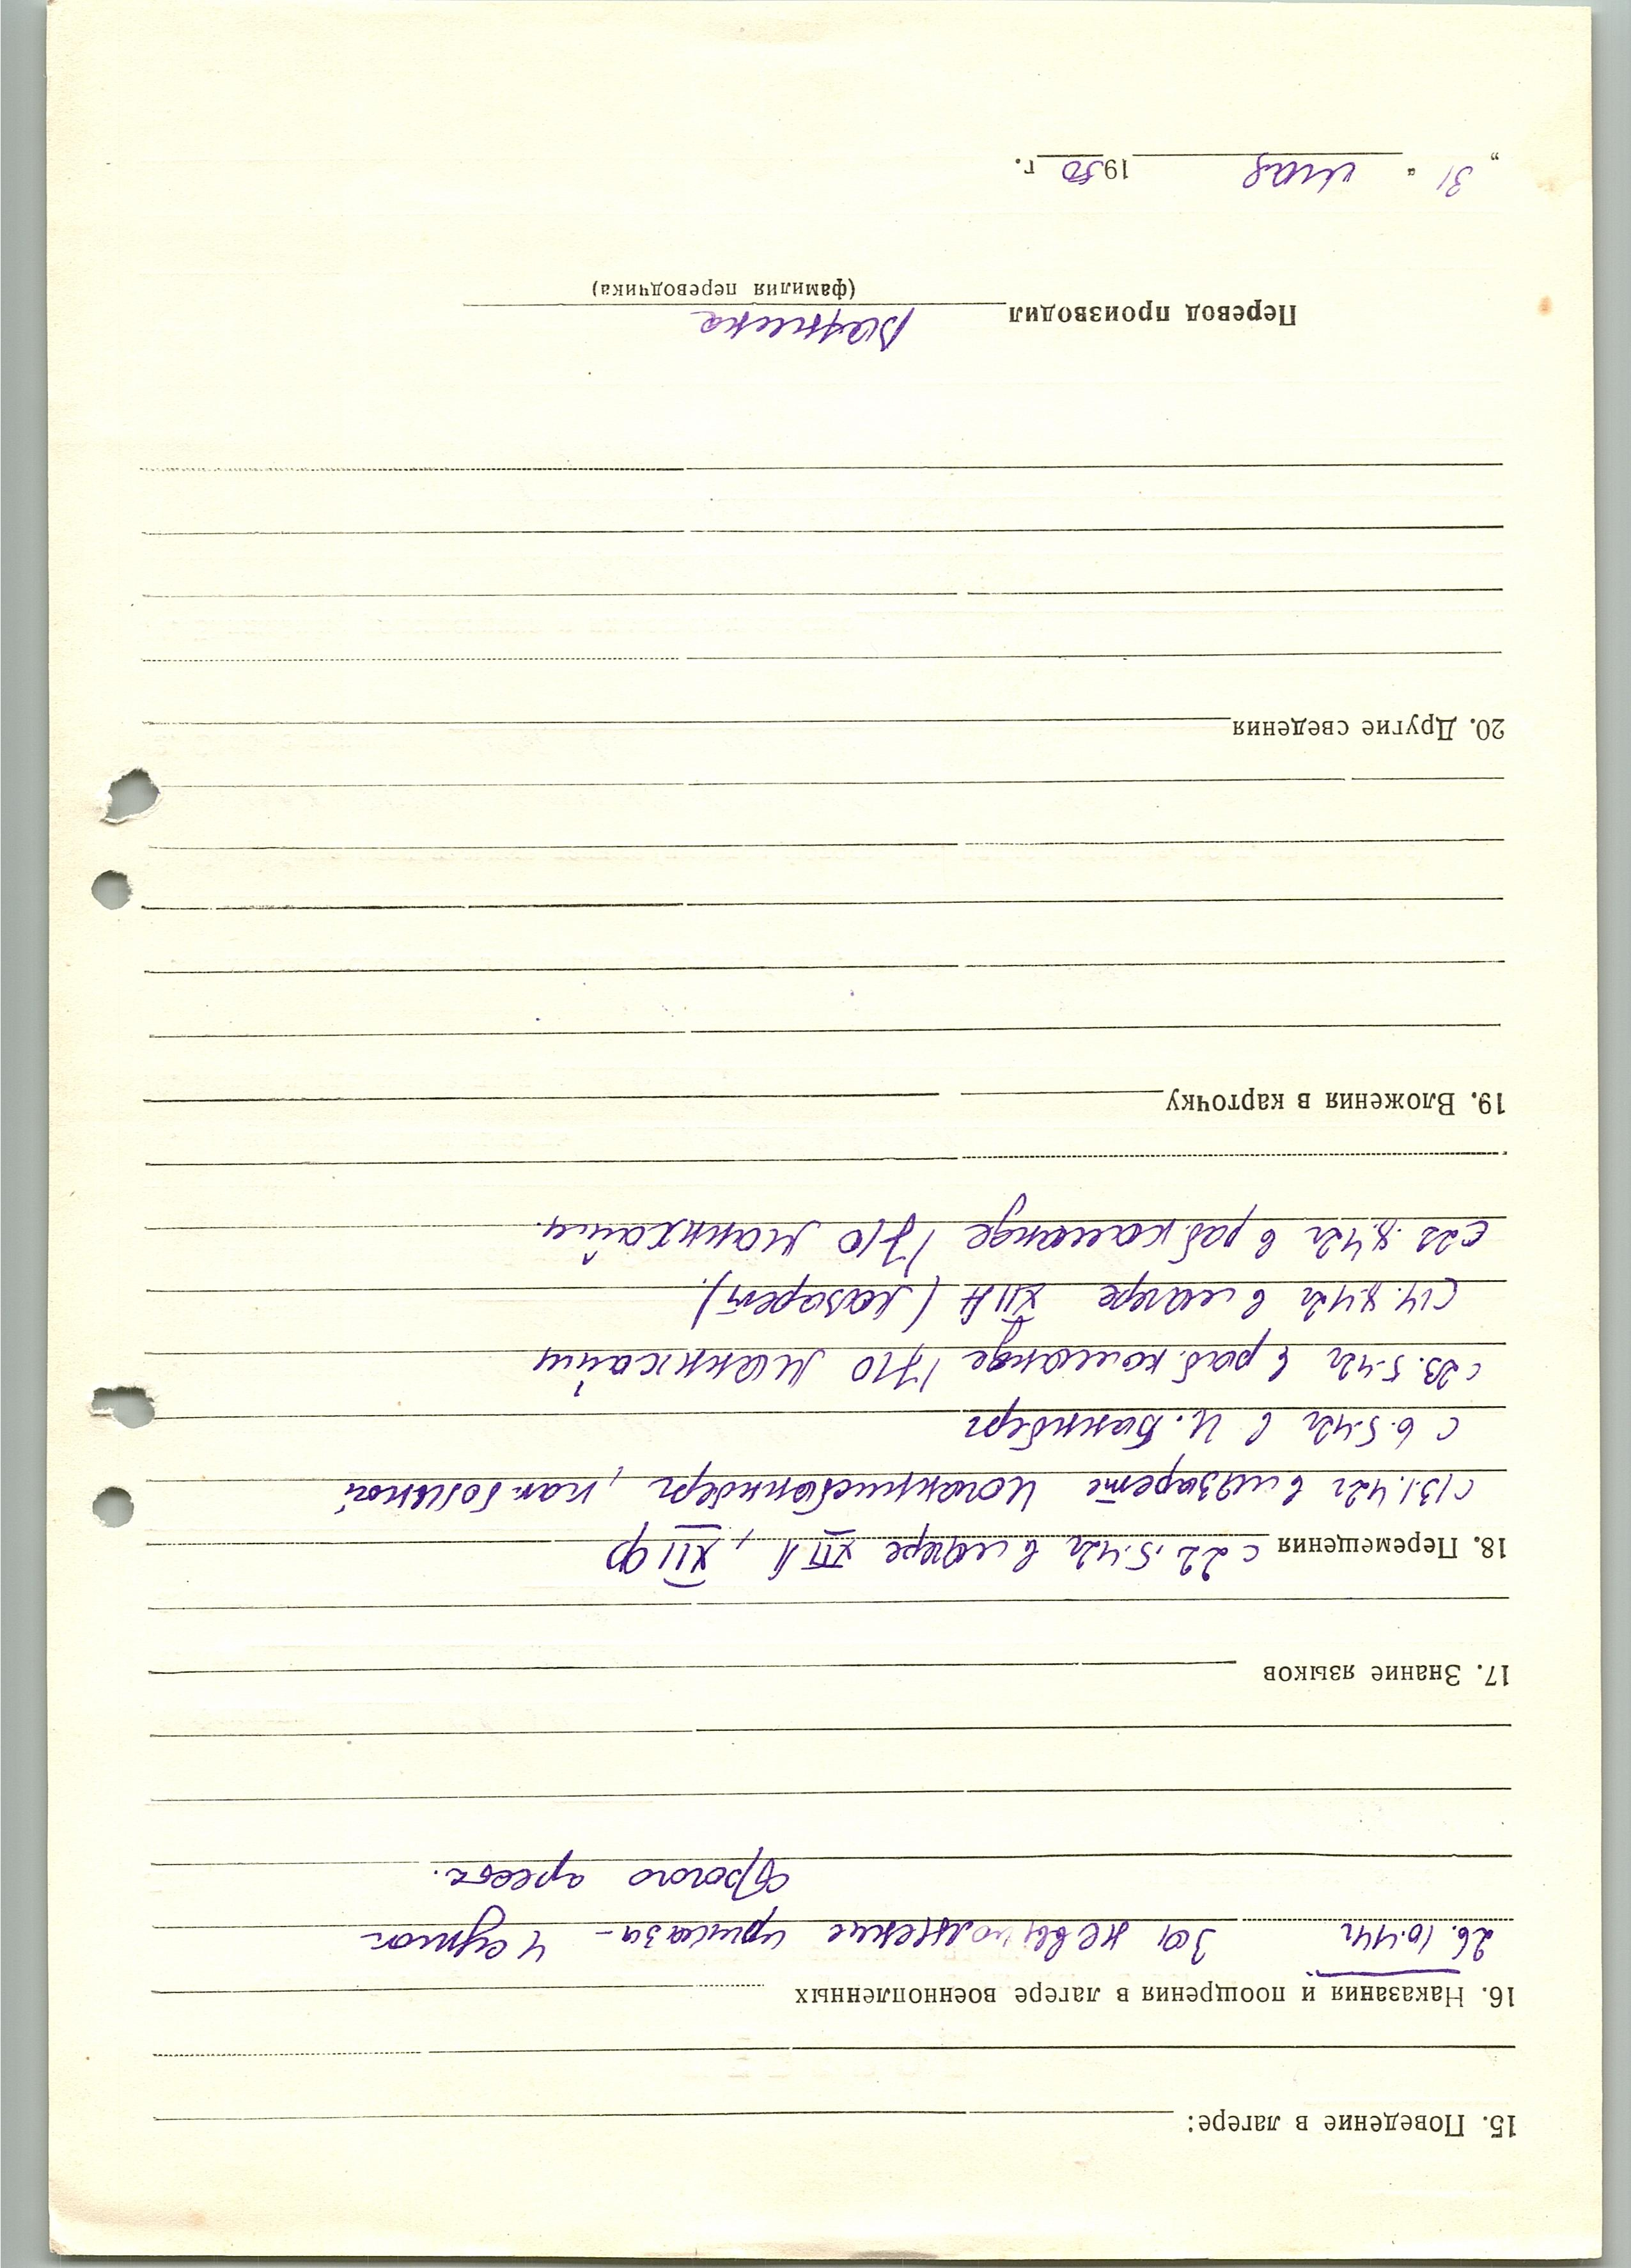 15. Поведение в лагере:
16. Наказания и поощрения в лагере военнопленных
26.10.44г За невыполнение приказа – 4 суток
строгого ареста.
17. Знание языков
18. Перемещения с 22.5.42г в лагере XII А, XII Ф
с 13.1.42г в лазарете Иоаннисваннберг, как больной
с 6.5.42г в И. Баннберг
с 23.5.42г в раб. команде 1710 Маннхайм
с 14.8.42г в лагере XII А (лазарет).
с 22.8.42г в раб. команде 1710 Маннхайм.
19. Вложения в карточку
20. Другие сведения
Перевод производил
(фамилия переводчика)
„31“ мая 1950 г.